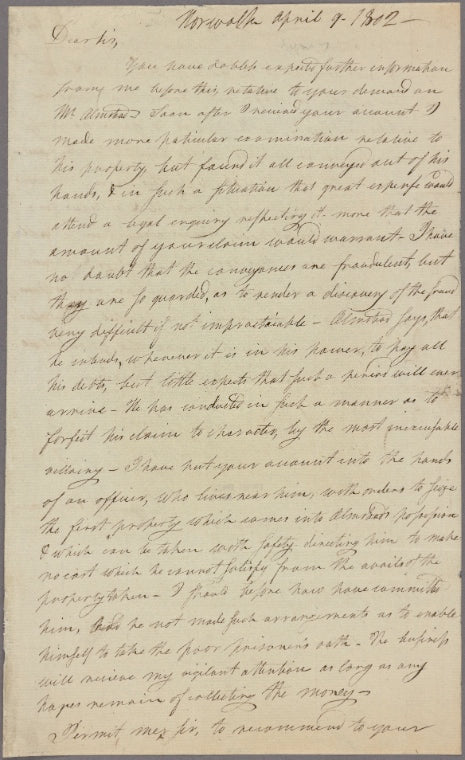 Norwalk April 9. 1802 -
Dear sir,
You have doubtless expected further information
from me before this, relative to your demand on
Mr. Olmstead. Soon after I received your account I
made more paticular examination relative to
his property, but found it all conveyed out of his
hands, & in such a situation that great expense would
attend a legal enquiry respecting it - more that the
amount of your claim would warrant - I have
no doubt that the conveyances are fraudulent, but
they are so guarded, as to render a discovery of the fraud
very difficult if not impracticable - Olmstead says, that
he intends, whenever it is in his power, to pay all
his debts, but little expects that such a period will ever
arrive - He has conducted in such a manner as to
forfeit his claim to character, by the most inexcusable
villainy - I have put your account into the hands
of an officer, who lives near him, with orders to seize
the first property which comes into Olmstead's possession
& which can be taken with safety directing him to make
no cost which he cannot satisfy from the avails of the
property taken - I should before now have committed
him, had he not made such arrangements as to enable
himself to take the poor prisoner's oath - The business
will recieve my vigilant attention as long as any
hopes remain of collecting the money -
Permit me, sir, to recommend to your